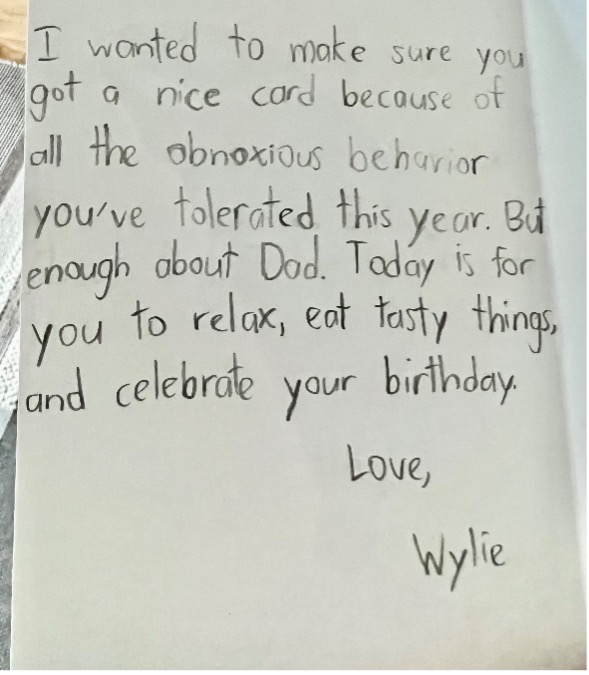 I wanted to make sure you
got a nice card because of
all the obnoxious behavior
you've tolerated this year. But
enough about Dad. Today is for
you to relax, eat tasty things,
and celebrate your birthday.
Love,
Wylie